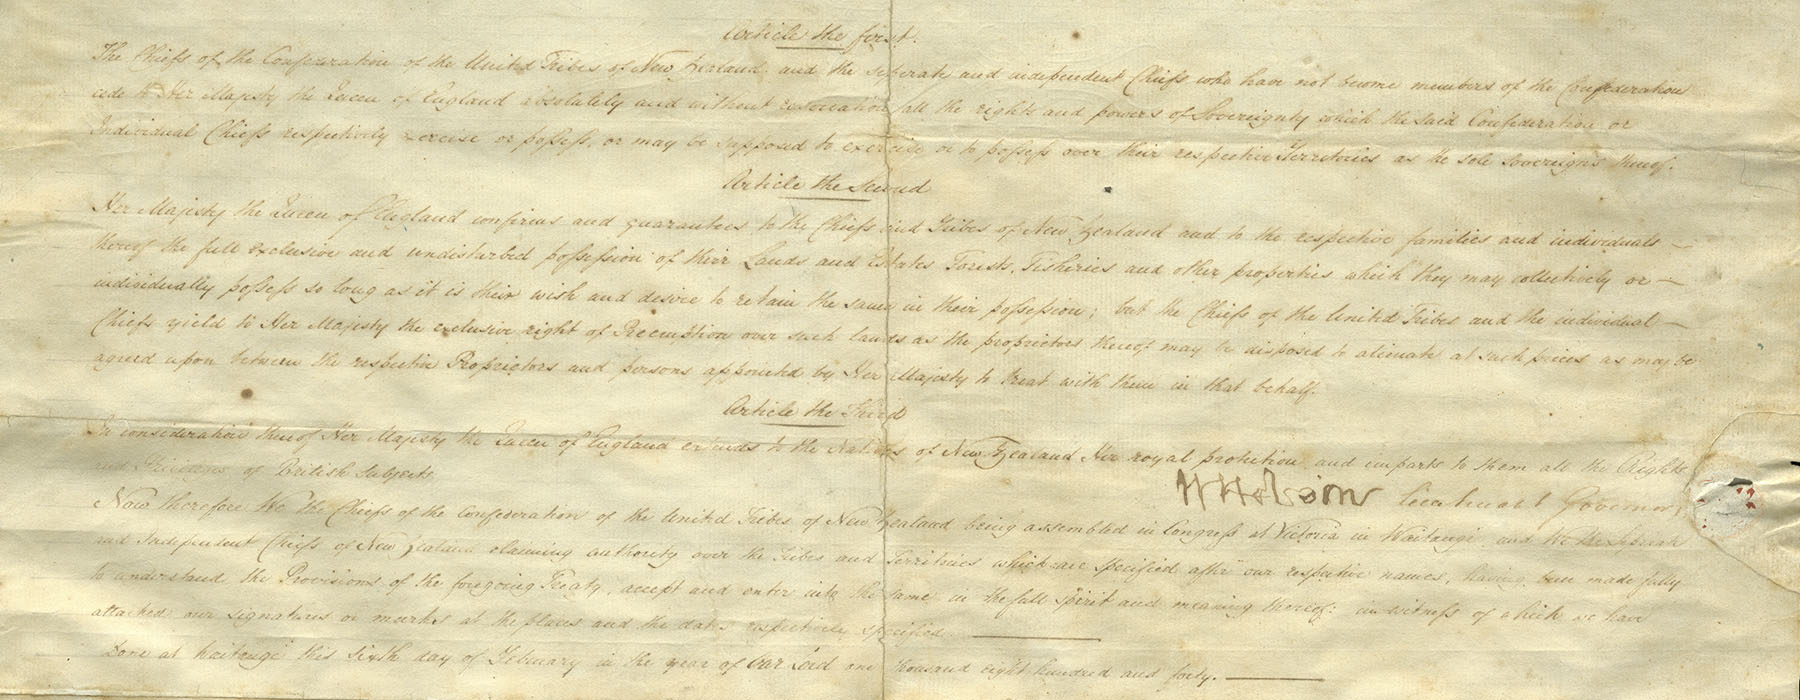 Article the first.
The Chiefs of the Confederation of the United Tribes of New Zealand and the seperate and independent Chiefs who have not become members of the Confederation
cede to Her Majesty the Queen of England absolutely and without reservation all the rights and powers of Sovereignty which the said Confederation or
Individual Chiefs respectively exercise or possess, or may be supposed to exercise or to possess over their respective Territories as the sole Sovereigns thereof.
Article the Second
Her Majesty the Queen of England confirms and guarantees to the Chiefs and Tribes of New Zealand and to the respective families and individuals —
thereof the full exclusive and undisturbed possession of their Lands and Estates Forests, Fisheries and other properties which they may collectively or —
individually possess so long as it is their wish and desire to retain the same in their possession; but the Chiefs of the United Tribes and the individual —
Chiefs yield to Her Majesty the exclusive right of Preemption over such lands as the proprietors thereof may be disposed to alienate at such prices as may be
agreed upon between the respective Proprietors and persons appointed by Her Majesty to treat with them in that behalf.
Article the Third
In consideration thereof Her Majesty the Queen of England extends to the Natives of New Zealand Her royal protection and imparts to them all the Rights
and Privileges of British Subjects.
W Hobson Lieutenant Governor
Now therefore We the Chiefs of the Confederation of the United Tribes of New Zealand being assembled in Congress at Victoria in Waitangi and We the Seperate
and Independent Chiefs of New Zealand claiming authority over the Tribes and Territories which are specified after our respective names, having been made fully
to understand the Provisions of the foregoing Treaty, accept and enter into the same in the full spirit and meaning thereof: in witness of which we have
attached our signatures or marks at the places and the dates respectively specified. —
Done at Waitangi this Sixth day of February in the year of Our Lord one thousand eight hundred and forty. —